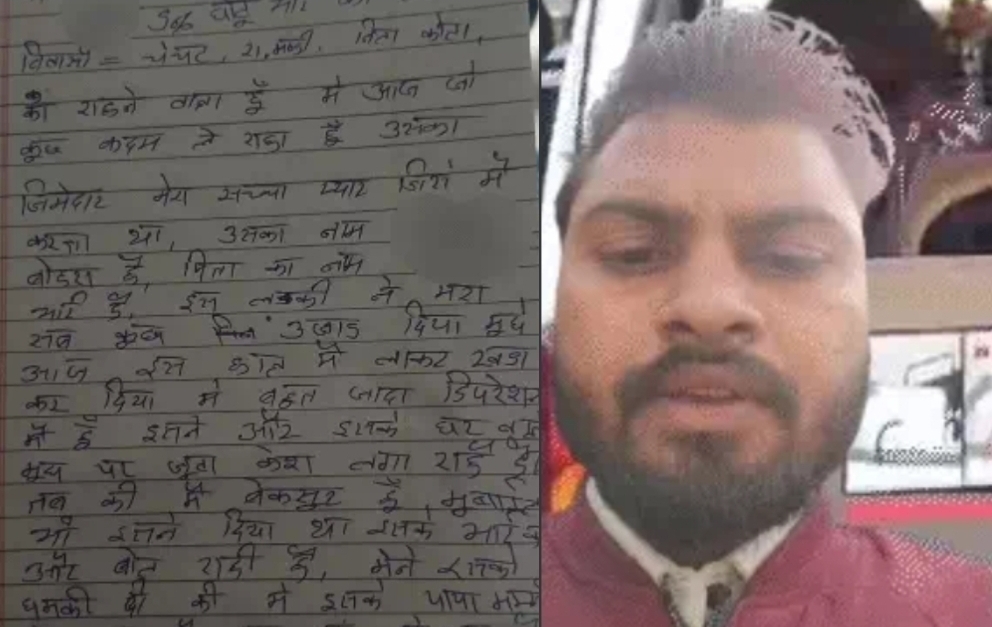 S/o चंदू
निवासी = चेचट, रा,मंडी, जिला कोटा,
का राहने वाला हूँ मे आज जो
कुछ कदम ले राहा हूँ उसका
जिमेदार मेरा सच्चा प्यार जिसे मैं
करता था, उसका नाम
बोहरा है, पिता का नाम
भाई है, इस लडकी ने मेरा
सब कुछ उजाड़ दिया मुझे
आज इस हाल मैं लाकर खडा
कर दिया मे बहुत जादा डिपरेशन
में हूँ इसने और इसके घर
मुझ पर जुठा केश लगा राहे है
जब की मैं बेकसुर हूँ
भी इसने दिया था इसके
और बोल राही है, मेने इसको
धमकी दी की मे इसके पापा मम्मी